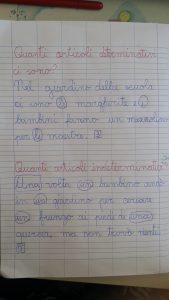 Quanti articoli determinativi
ci sono?
Nel giardino della scuola
ci sono le margherite e i
bambini fanno un mazzolino
per la maestra. 3
Quanti articoli indeterminativi
Una volta un bambino andò
in un giardino per cercare
un fungo ai piedi di una
quercia, ma non trovò
5